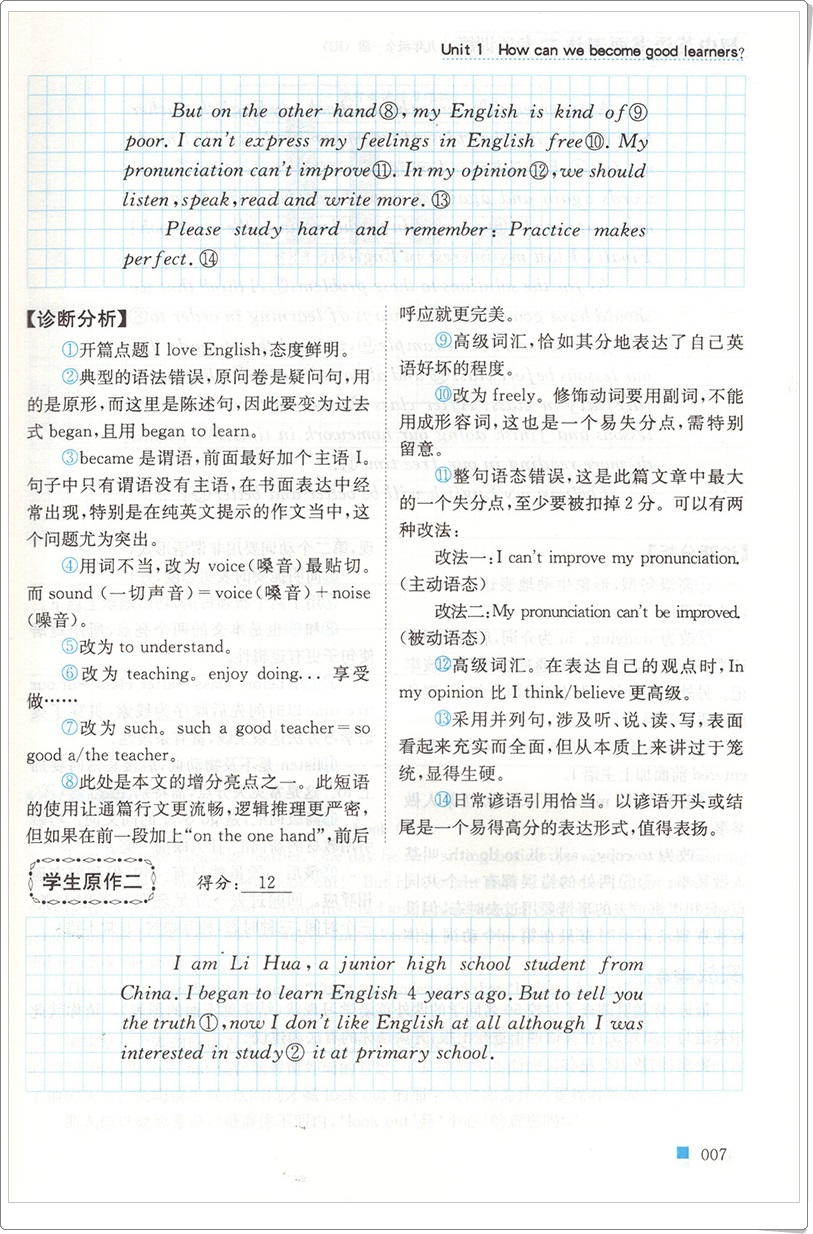 Unit 1 How can we become good learners?
But on the other hand⑧, my English is kind of⑨
poor. I can't express my feelings in English free⑩. My
pronunciation can't improve⑪. In my opinion⑫, we should
listen, speak, read and write more. ⑬
Please study hard and remember: Practice makes
perfect. ⑭
【诊断分析】
①开篇点题 I love English,态度鲜明。
②典型的语法错误,原问卷是疑问句,用
的是原形,而这里是陈述句,因此要变为过去
式 began,且用 began to learn。
③became 是谓语,前面最好加个主语 I。
句子中只有谓语没有主语,在书面表达中经
常出现,特别是在纯英文提示的作文当中,这
个问题尤为突出。
④用词不当,改为 voice(嗓音)最贴切。
而 sound (一切声音)=voice(嗓音)+noise
(噪音)。
⑤改为 to understand。
⑥改为 teaching。enjoy doing... 享受
做……
⑦改为 such。such a good teacher=so
good a/the teacher。
⑧此处是本文的增分亮点之一。此短语
的使用让通篇行文更流畅,逻辑推理更严密,
但如果在前一段加上“on the one hand”,前后
呼应就更完美。
⑨高级词汇,恰如其分地表达了自己英
语好坏的程度。
⑩改为 freely。修饰动词要用副词,不能
用成形容词,这也是一个易失分点,需特别
留意。
⑪整句语态错误,这是此篇文章中最大
的一个失分点,至少要被扣掉 2 分。可以有两
种改法:
改法一:I can't improve my pronunciation.
(主动语态)
改法二:My pronunciation can't be improved.
(被动语态)
⑫高级词汇。在表达自己的观点时,In
my opinion 比 I think/believe 更高级。
⑬采用并列句,涉及听、说、读、写,表面
看起来充实而全面,但从本质上来讲过于笼
统,显得生硬。
⑭日常谚语引用恰当。以谚语开头或结
尾是一个易得高分的表达形式,值得表扬。
学生原作二 得分: 12
I am Li Hua, a junior high school student from
China. I began to learn English 4 years ago. But to tell you
the truth①, now I don't like English at all although I was
interested in study② it at primary school.
007